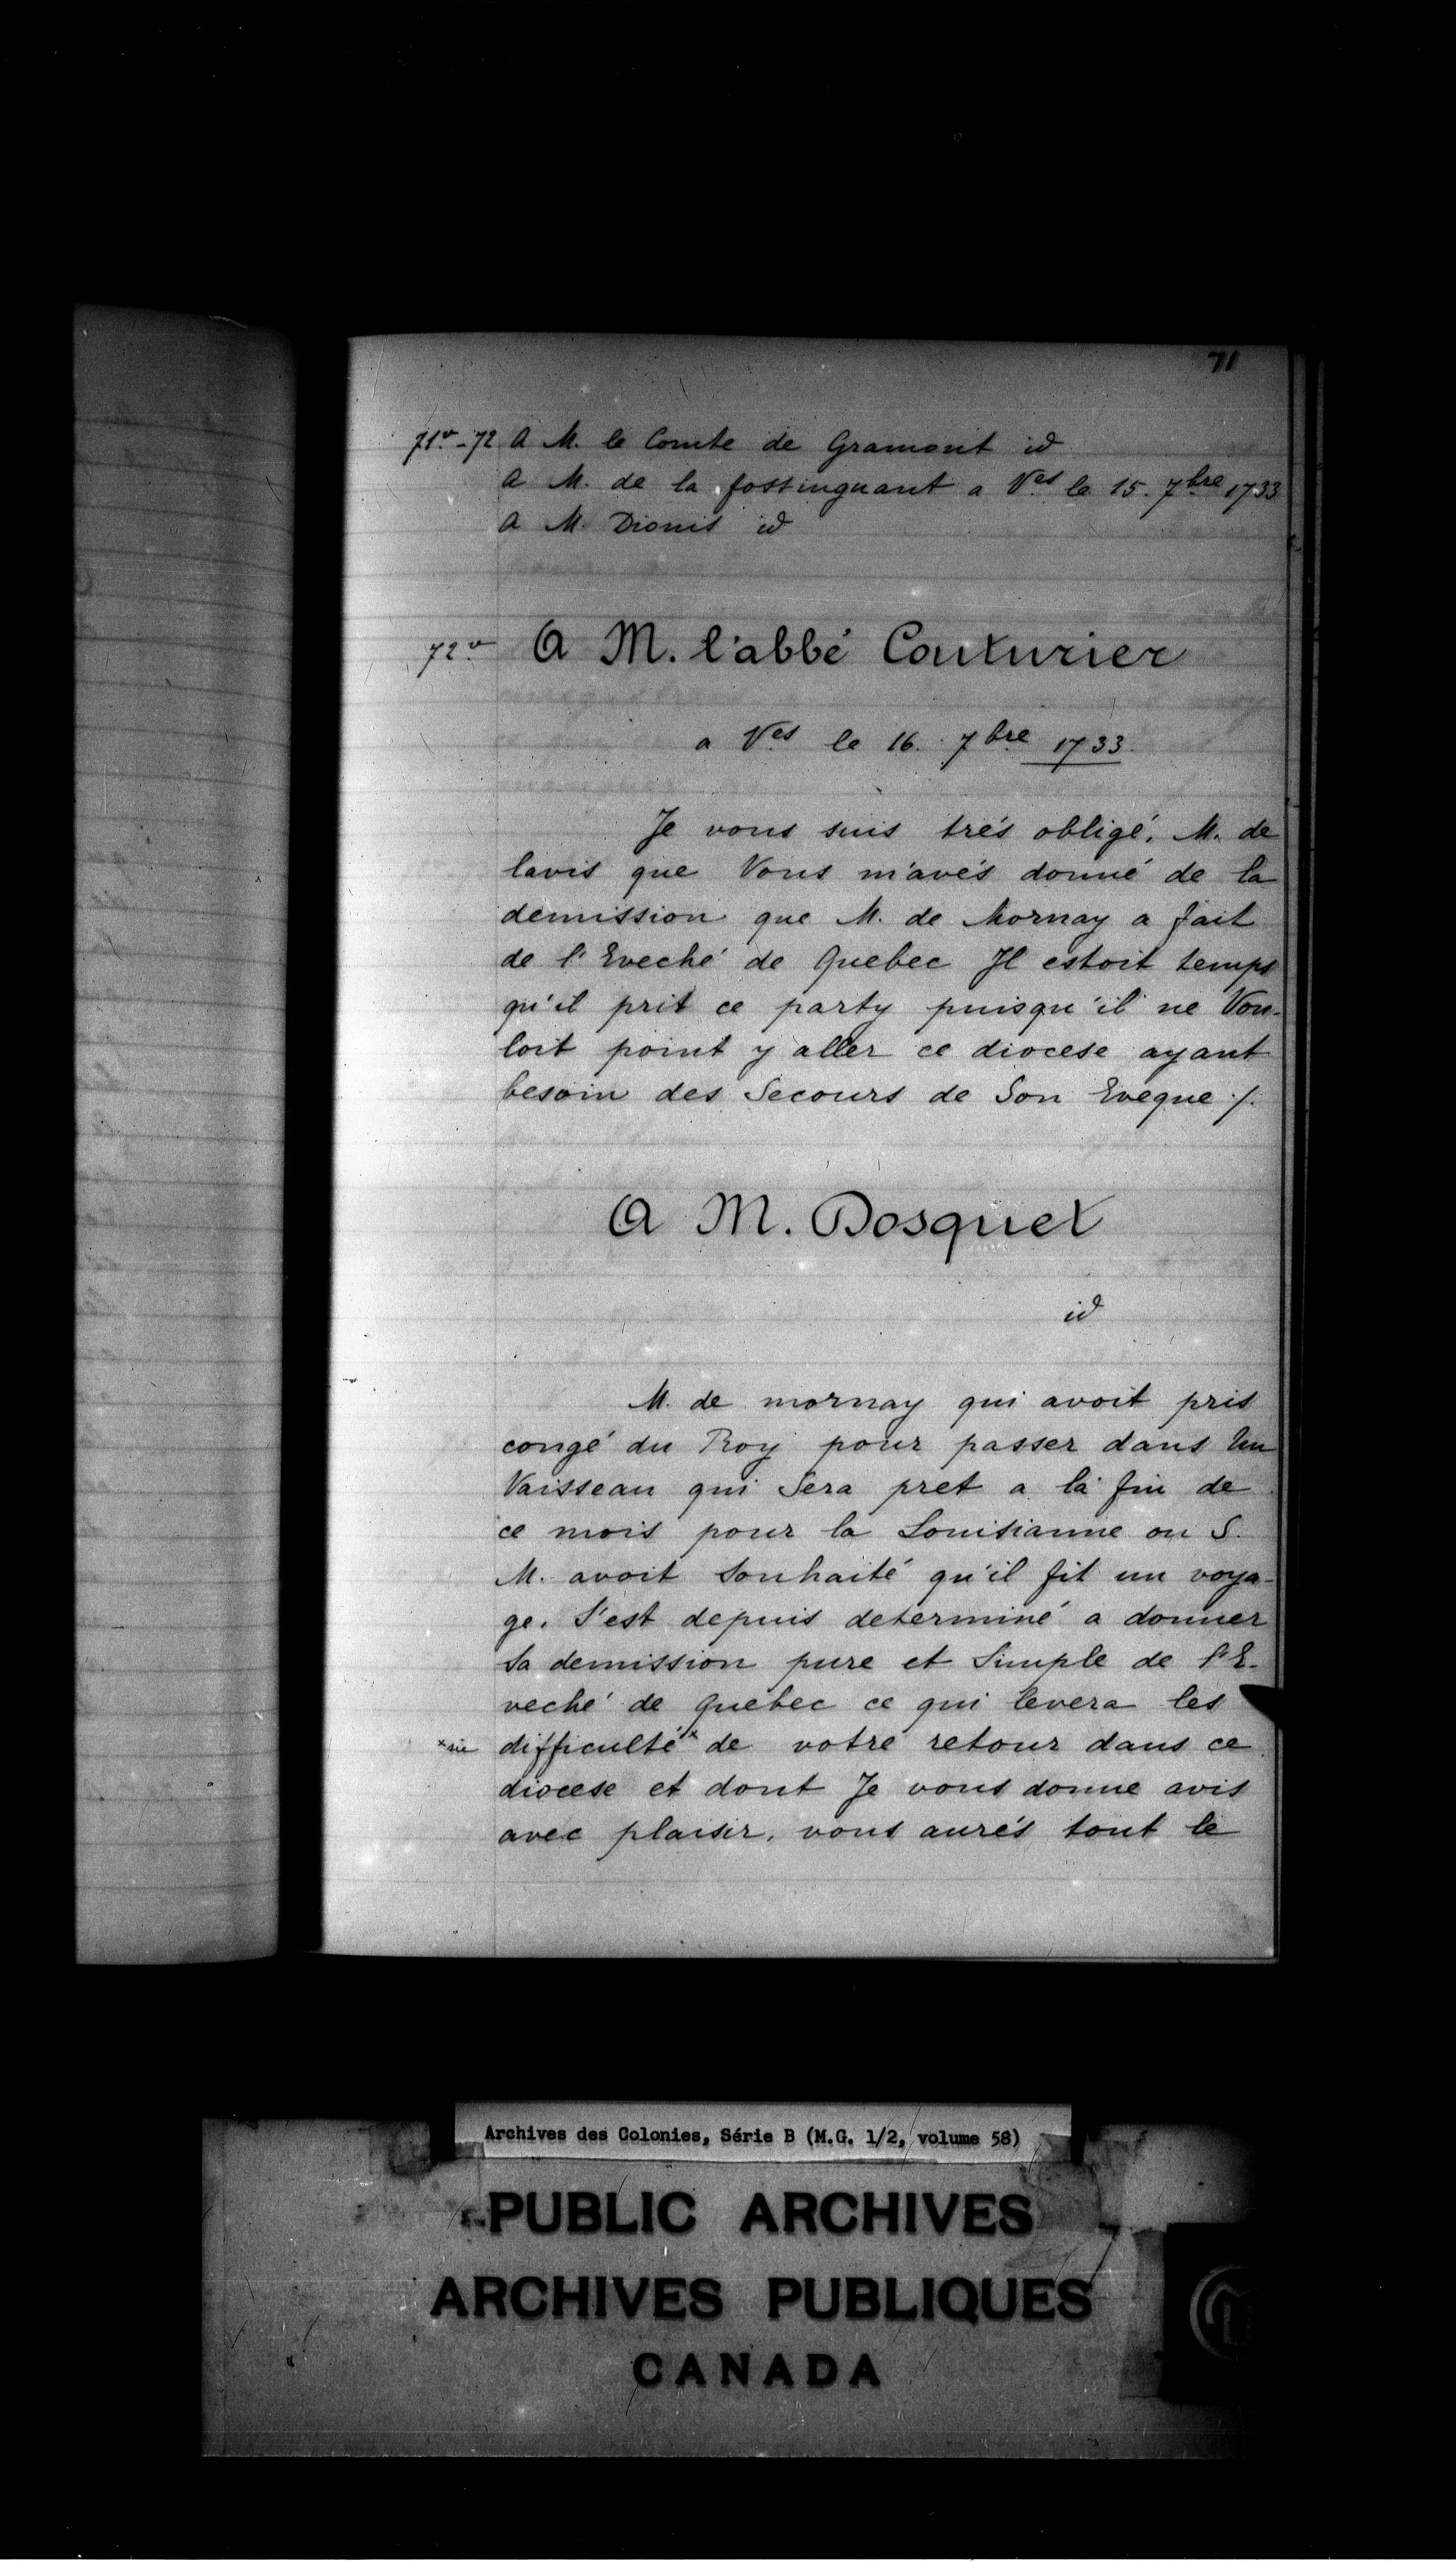 71
71v-72 A M. le Comte de Gramont id
A M. de la fostinguant a Ves le 15. 7bre 1733
A M. Dionis id
72v A M. l'abbé Couturier
a Ves le 16. 7bre 1733.
Je vous suis trés obligé, M. de
lavis que Vous m'avés donné de la
demission que M. de Mornay a fait
de l'Eveché de Quebec Jl estoit temps
qu'il prit ce party puisqu'il ne Vou-
loit point y aller ce diocese ayant
besoin des Secours de Son Eveque ./.
A M. Dosquet
id
M. de mornay qui avoit pris
congé du Roy pour passer dans Un
Vaisseau qui Sera pret a la fin de
ce mois pour la Louisianne ou S.
M. avoit Souhaité qu'il fit un voya-
ge. S'est depuis determiné a donner
Sa demission pure et Simple de l'E-
veché de Quebec ce qui levera les
*sic difficulté* de votre retour dans ce
diocese et dont Je vous donne avis
avec plaisir, vous aurés tout le
Archives des Colonies, Série B (M.G. 1/2, volume 58)
PUBLIC ARCHIVES
ARCHIVES PUBLIQUES
CANADA